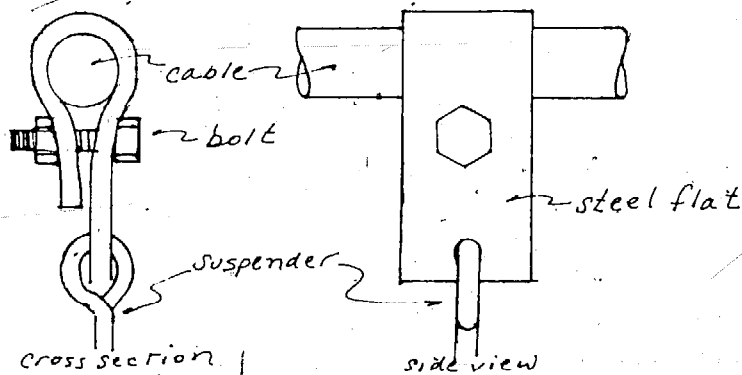 cable
bolt
steel flat
suspender
cross section
side view